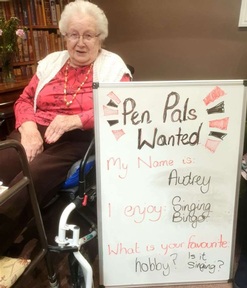 Pen Pals
Wanted
My Name is:
Audrey
I enjoy: Singing
Bingo
What is your favourite
hobby? Is it
singing?